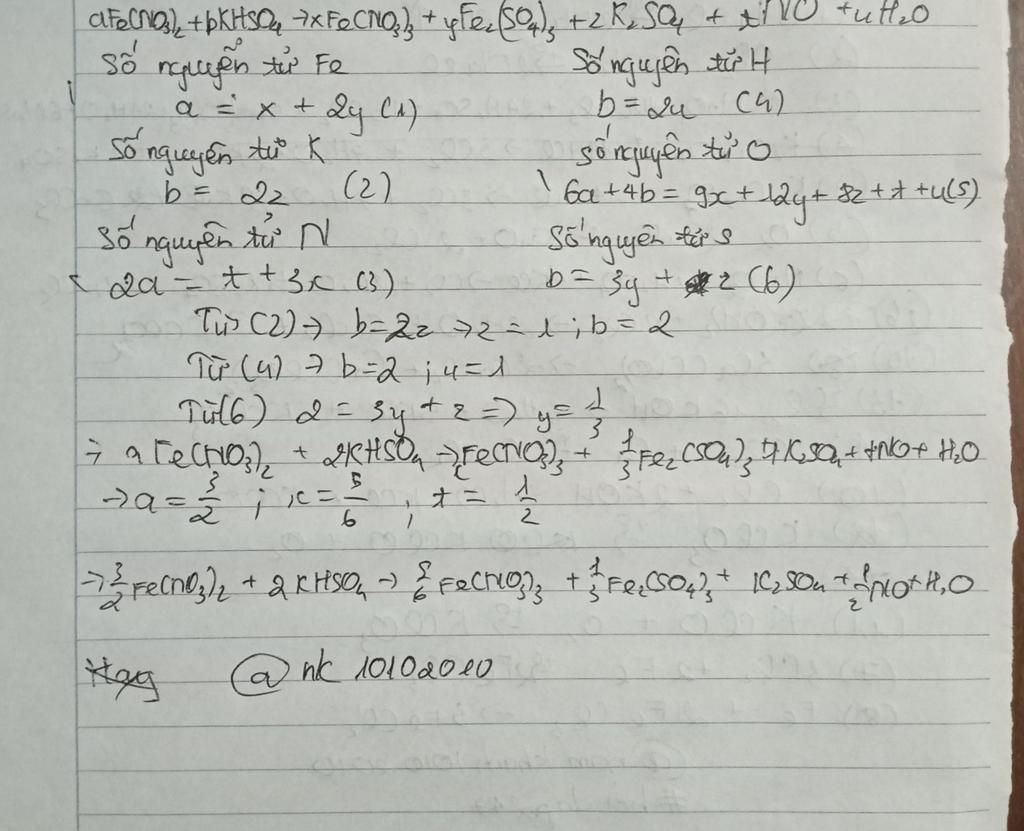 aFe(NO3)2 + bKHSO4 → xFe(NO3)3 + yFe2(SO4)3 + zK2SO4 + tNO + uH2O
Số nguyên tử Fe Số nguyên tử H
a = x + 2y (1) b = 2u (4)
Số nguyên tử K Số nguyên tử O
b = 2z (2) 6a + 4b = 9x + 12y + 4z + t + u (5)
Số nguyên tử N Số nguyên tử S
2a = t + 3x (3) b = 3y + z (6)
Từ (2) → b = 2z → z = 1 ; b = 2
Từ (4) → b = 2 ; u = 1
Từ (6) 2 = 3y + z => y = 1/3
→ aFe(NO3)2 + 2KHSO4 → xFe(NO3)3 + 1/3 Fe2(SO4)3 + K2SO4 + tNO + H2O
→ a = 3/2 ; x = 5/6 ; t = 1/2
→ 3/2 Fe(NO3)2 + 2KHSO4 → 5/6 Fe(NO3)3 + 1/3 Fe2(SO4)3 + K2SO4 + 1/2 NO + H2O
@nk 10102010